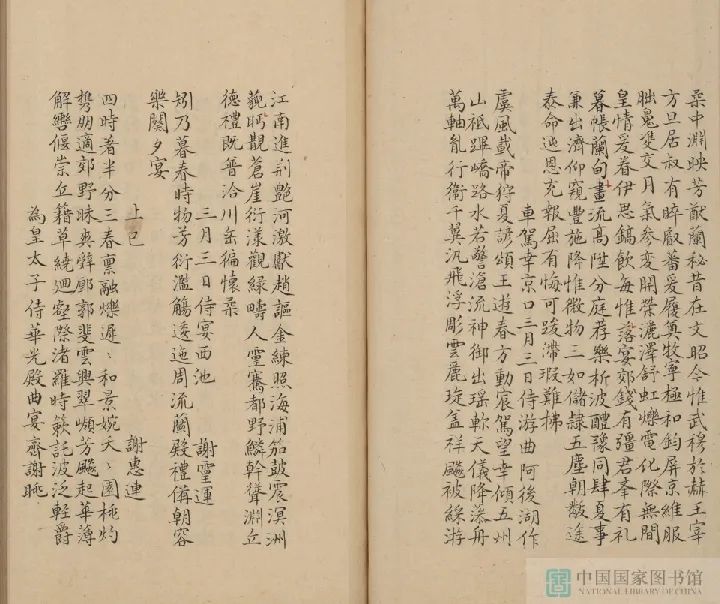 桑中淵映芳猷蘭秘昔在文昭今惟武穆於赫王宰
方旦居叔有睟叡蕃爰履奠牧寧極和鈞屏京維服
朏魄雙交月氣參變開榮灑澤舒虹爍電化際無間
皇情爰眷伊思鎬飲每惟洛宴郊餞有壇君舉有礼
暮帳蘭甸畫流高陞分庭荐樂析波醴豫同肆夏事
兼出濟仰窺豐施降惟微物三如儲隸五塵朝黻途
泰命迍恩充報屈有悔可踐滯瑕難拂
車駕幸京口三月三日侍游曲阿後湖作
虞風載帝狩夏諺頌王遊春方動宸駕望幸傾五州
山祇蹕嶠路水若警滄流神御出瑶軫天儀降藻舟
萬軸胤行衛千翼汎飛浮彫雲麗琁蓋祥飈被綵游
江南進荆艷河激獻趙謳金練照海浦笳鼓震溟洲
藐眄覯蒼崖衍漾觀綠疇人靈騫都野鱗幹聳淵丘
德禮既普洽川岳徧懷柔
三月三日侍宴西池 謝靈運
矧乃暮春時物芳衍濫觴逶迤周流蘭殿禮備朝容
樂闋夕宴
上巳 謝惠連
四時著半分三春稟融爍遲〻和景婉夭〻園桃灼
攜朋適郊野昧爽辭鄽郭斐雲興翠嶺芳飈起華薄
解轡偃崇丘藉草繞迴壑際渚羅時簌託波泛輕爵
為皇太子侍華光殿曲宴齊謝朓
中国国家图书馆
NATIONAL LIBRARY OF CHINA